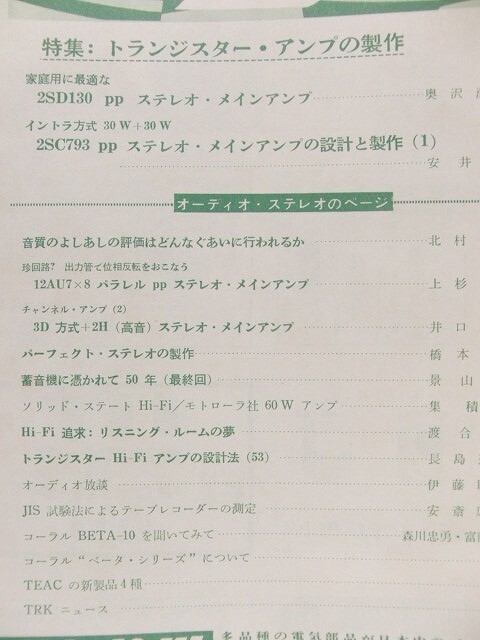 特集: トランジスター・アンプの製作
家庭用に最適な
2SD130 pp ステレオ・メインアンプ 奥沢
イントラ方式 30W+30W
2SC793 pp ステレオ・メインアンプの設計と製作 (1)
安井
オーディオ・ステレオのページ
音質のよしあしの評価はどんなぐあいに行われるか 北村
珍回路? 出力管で位相反転をおこなう
12AU7×8 パラレル pp ステレオ・メインアンプ 上杉
チャンネル・アンプ (2)
3D 方式+2H (高音) ステレオ・メインアンプ 井口
パーフェクト・ステレオの製作 橋本
蓄音機に憑かれて 50 年 (最終回) 景山
ソリッド・ステート Hi-Fi/モトローラ社 60W アンプ 集積
Hi-Fi 追求: リスニング・ルームの夢 渡合
トランジスター Hi-Fi アンプの設計法 (53) 長島
オーディオ放談 伊藤
JIS 試験法によるテープレコーダーの測定 安斎
コーラル BETA-10 を聞いてみて 森川忠勇・富
コーラル “ベータ・シリーズ” について
TEAC の新製品 4 種
TRK ニュース